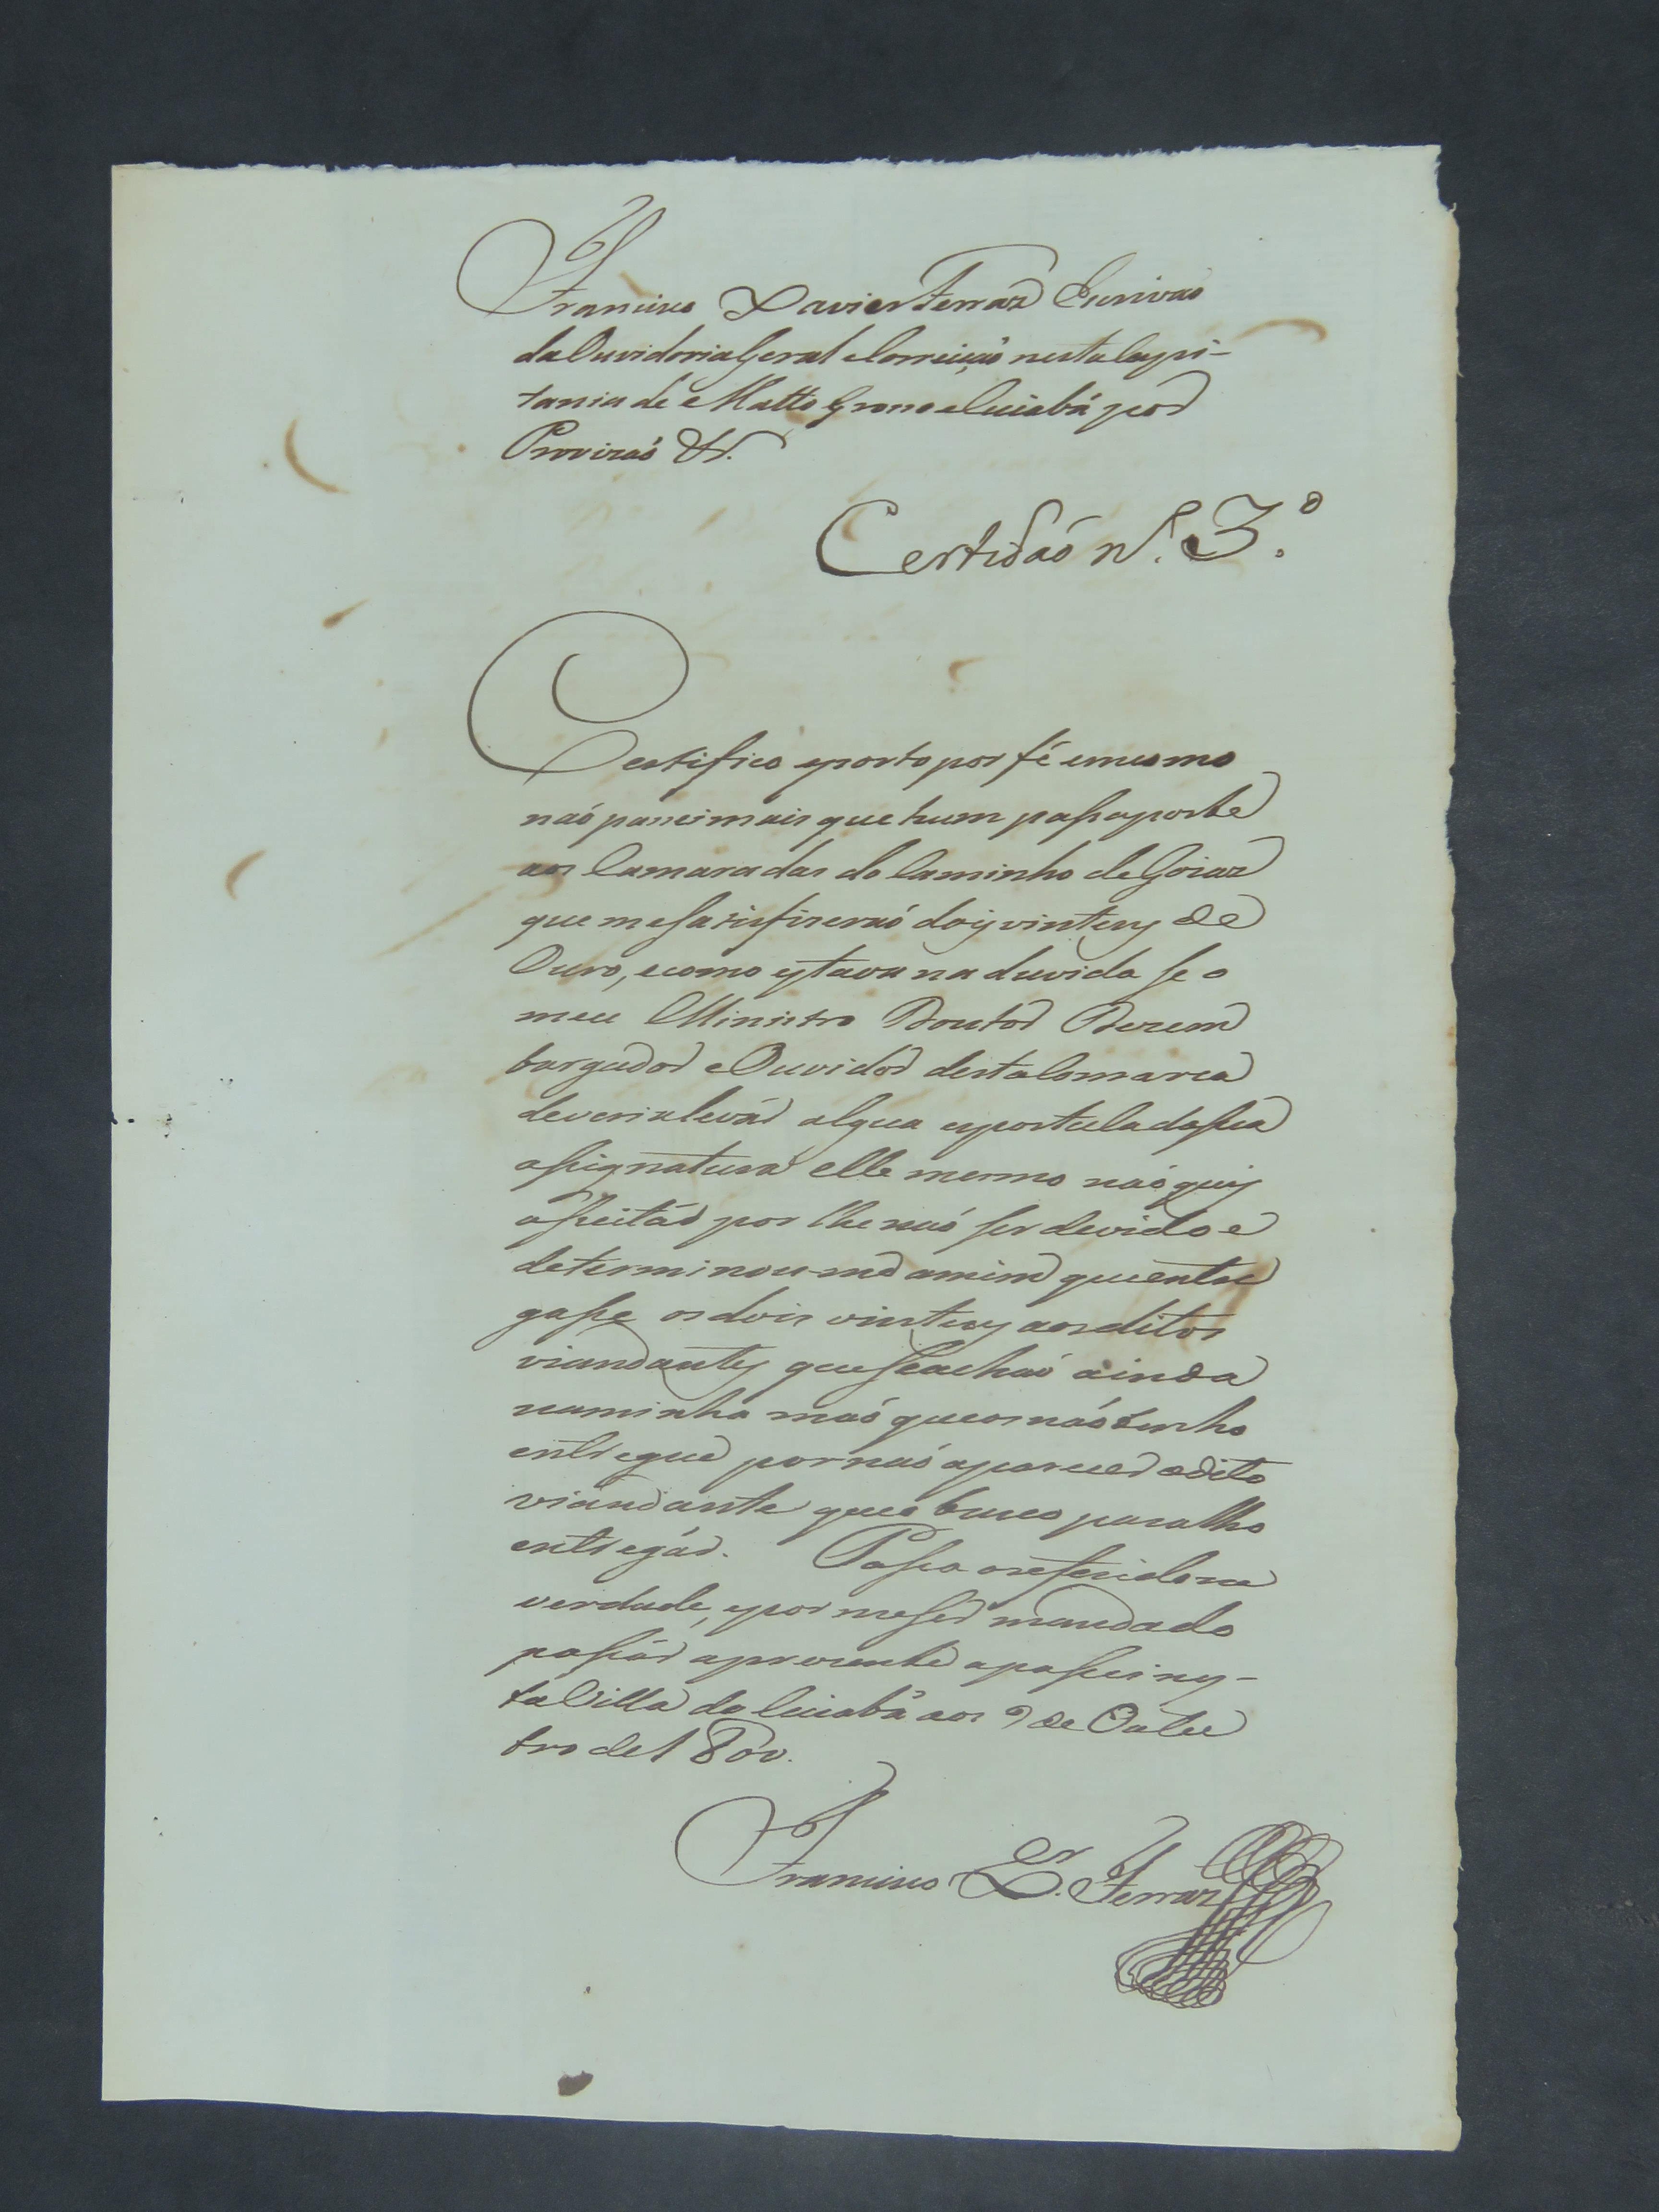 Francisco Xavier Ferraz Escrivaõ
da Ouvidoria Geral e Correiçaõ nesta Capi-
tania de Matto Groso e Cuiabá por
Provizaõ &ª.
Certidaõ Nº. 3.º
Certifico e porto por fé em como
naõ passei mais que hum passaporte
aos Camaradas do Caminho de Goiaz
que me satisfizeraõ doys vintens de
Ouro, e como estava na duvida se o
meu Ministro Doutor Dezem
bargador e Ouvidor desta Comarca
deveria levár algua esportula da sua
assignatura elle mesmo naõ quis
asseitár por lhe naõ ser devido e
determinou-me a mim que entre
gasse os dois vintens aos ditos
viandantes que se achaõ ainda
na minha maõ que os naõ tenho
entregue por naõ aparecer o dito
viandante que o busco para lho
entregár. Passa o referido na
verdade, e por me ser mandado
passár a prezente a passei nes-
ta Villa do Cuiabá aos 9 de Outu
bro de 1800.
Francisco X.er Ferraz